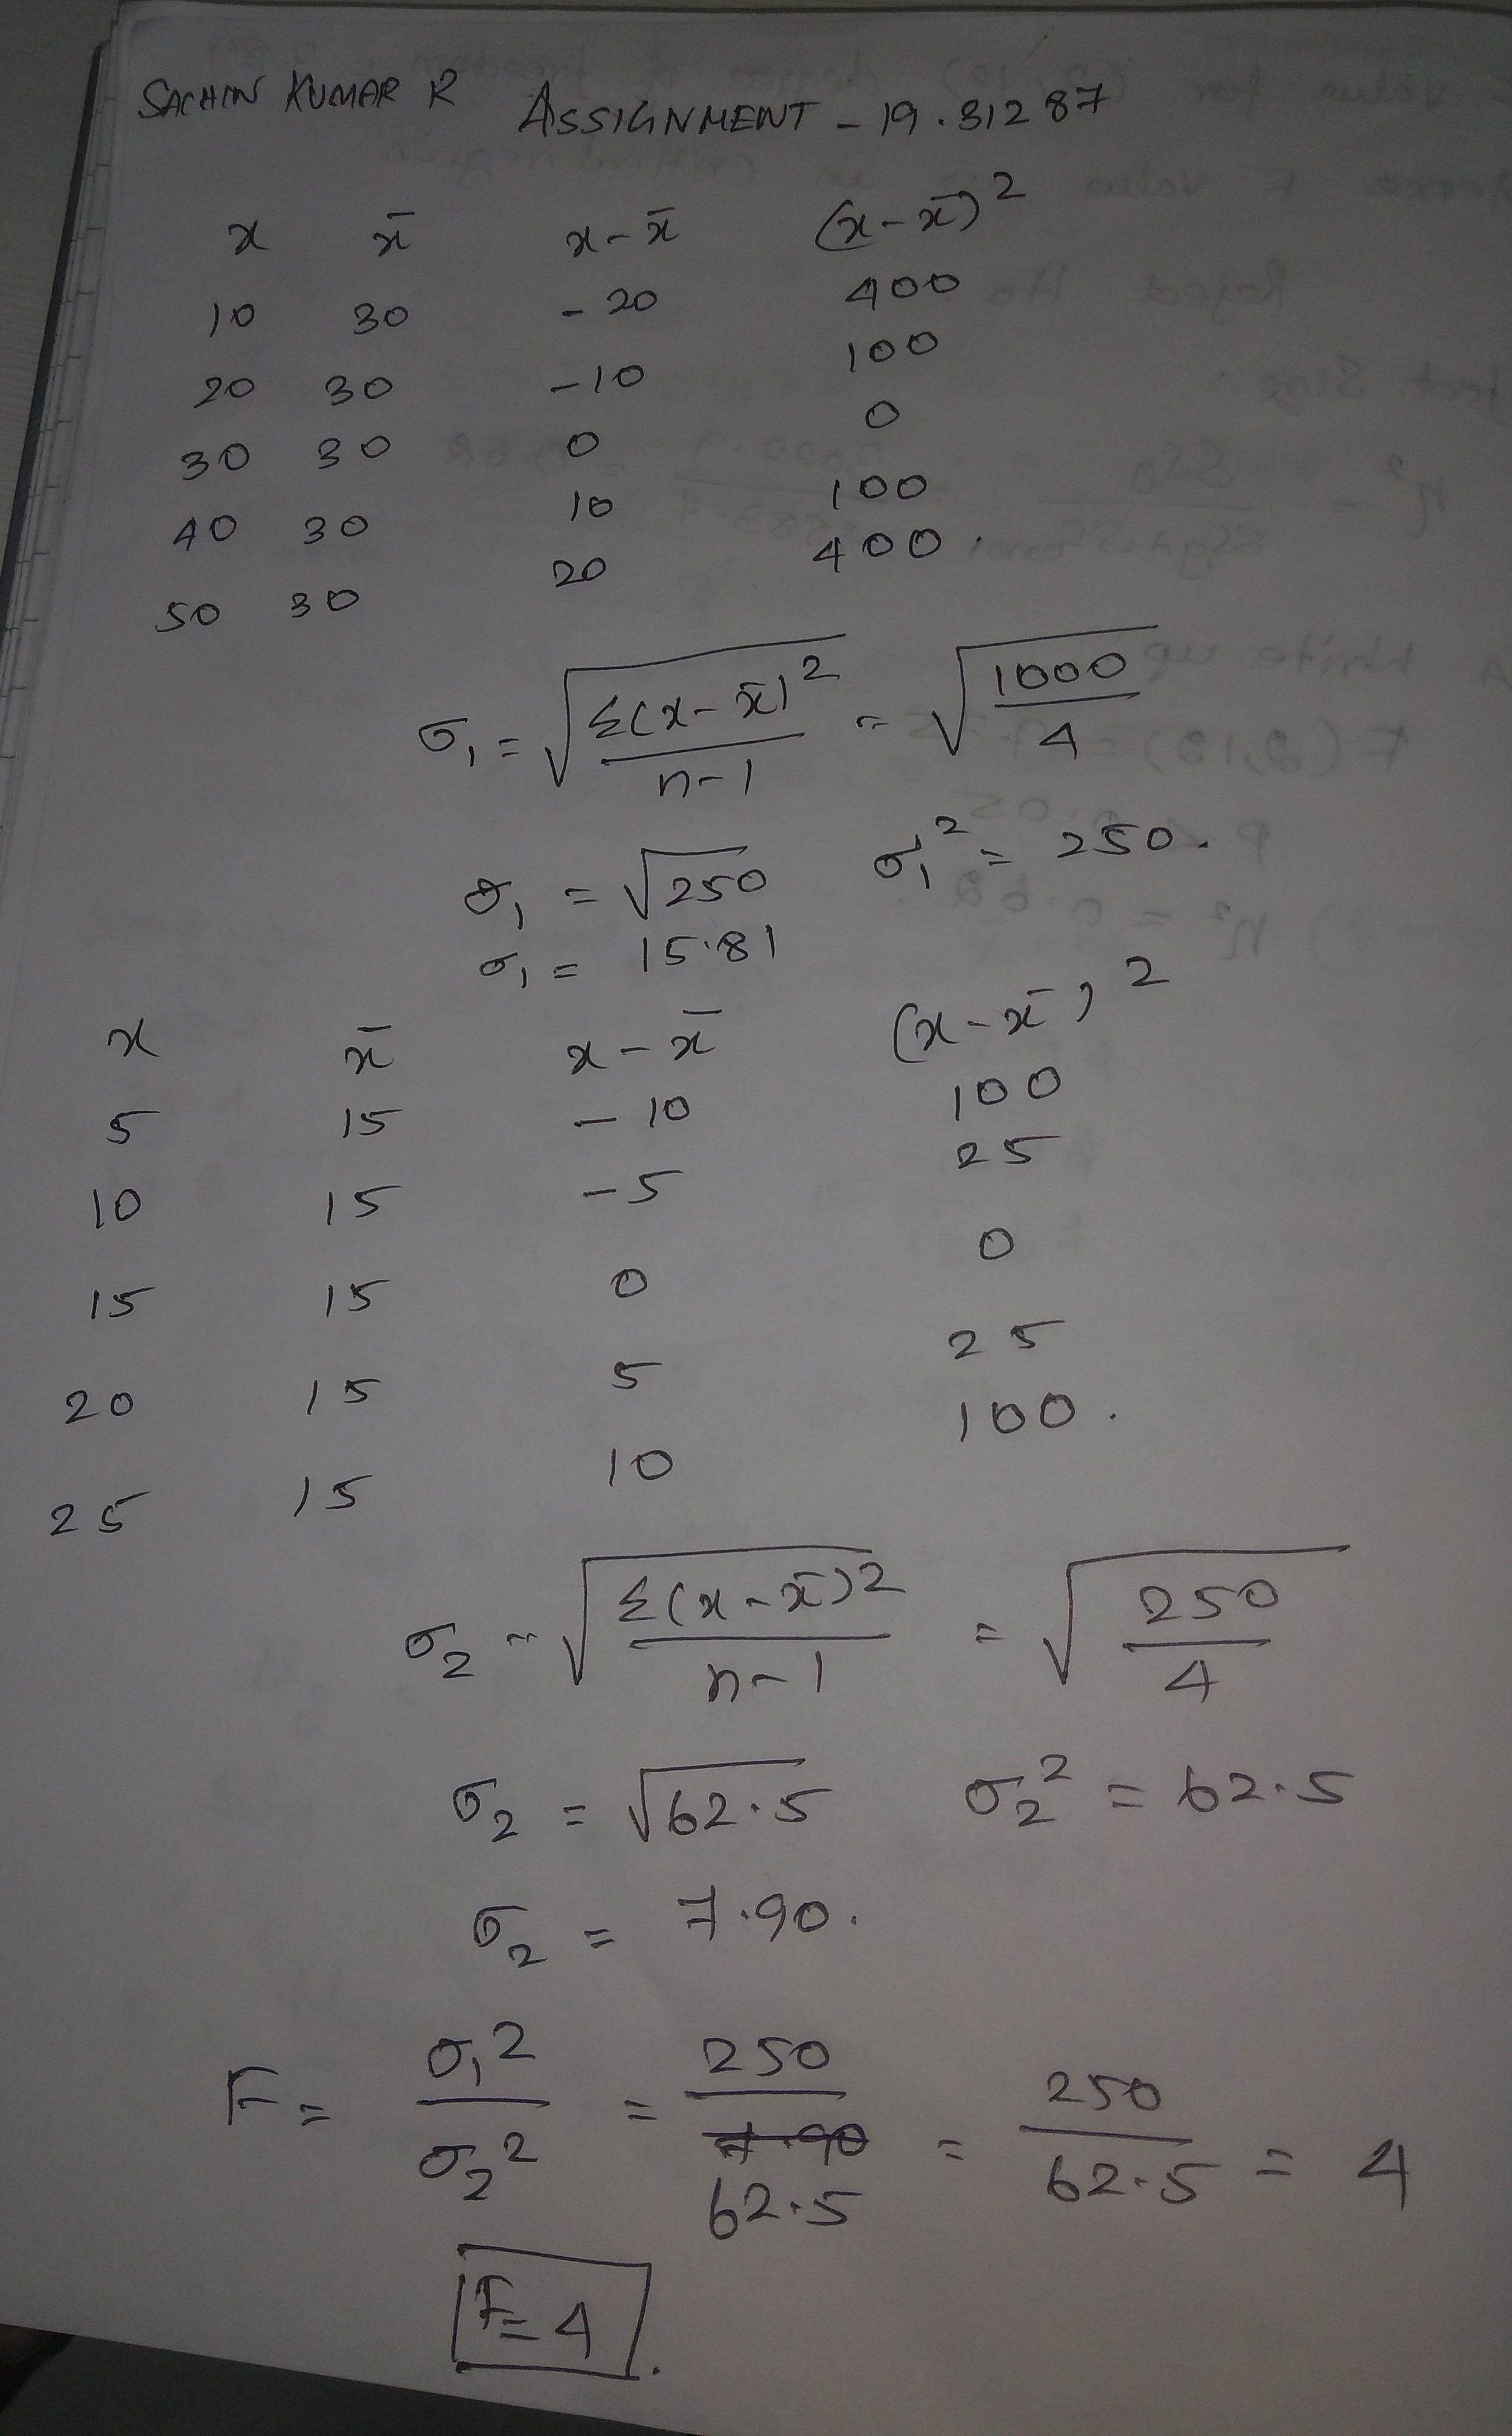 SACHIN KUMAR R ASSIGNMENT - 19.81287
x x̄ x-x̄ (x-x̄)²
10 30 -20 400
20 30 -10 100
30 30 0 0
40 30 10 100
50 30 20 400.
σ₁ = √Σ(x-x̄)²/n-1 = √1000/4
σ₁ = √250 σ₁² = 250.
σ₁ = 15.81
x x̄ x-x̄ (x-x̄)²
5 15 -10 100
10 15 -5 25
15 15 0 0
20 15 5 25
25 15 10 100.
σ₂ = √Σ(x-x̄)²/n-1 = √250/4
σ₂ = √62.5 σ₂² = 62.5
σ₂ = 7.90.
F = σ₁²/σ₂² = 250/62.5 = 250/62.5 = 4
F=4